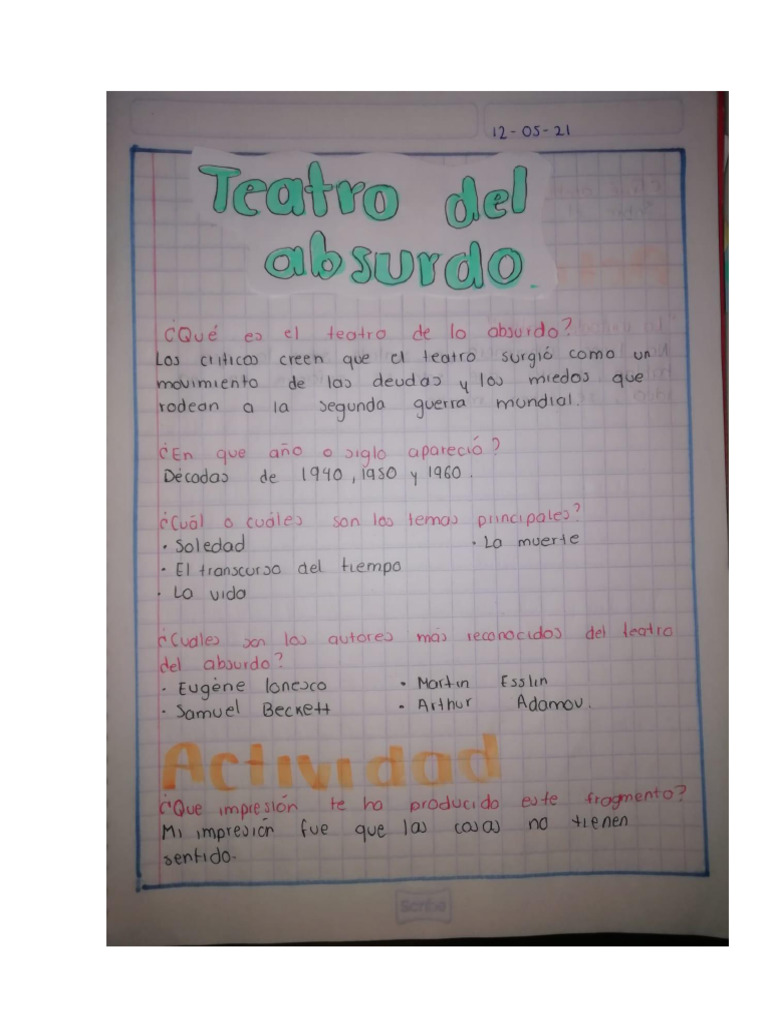 12-05-21
Teatro del
absurdo.
¿Qué es el teatro de lo absurdo?
Los criticos creen que el teatro surgió como un
movimiento de las deudas y los miedos que
rodean a la segunda guerra mundial.
¿En que año o siglo apareció?
Décadas de 1940, 1950 y 1960.
¿Cuál o cuáles son los temas principales?
• Soledad • La muerte
• El transcurso del tiempo
• La vida
¿Cuales son los autores más reconocidos del teatro
del absurdo?
• Eugène Ionesco • Martin Esslin
• Samuel Beckett • Arthur Adamov.
Actividad
¿Que impresión te ha producido este fragmento?
Mi impresión fue que las cosas no tienen
sentido.
Scribe